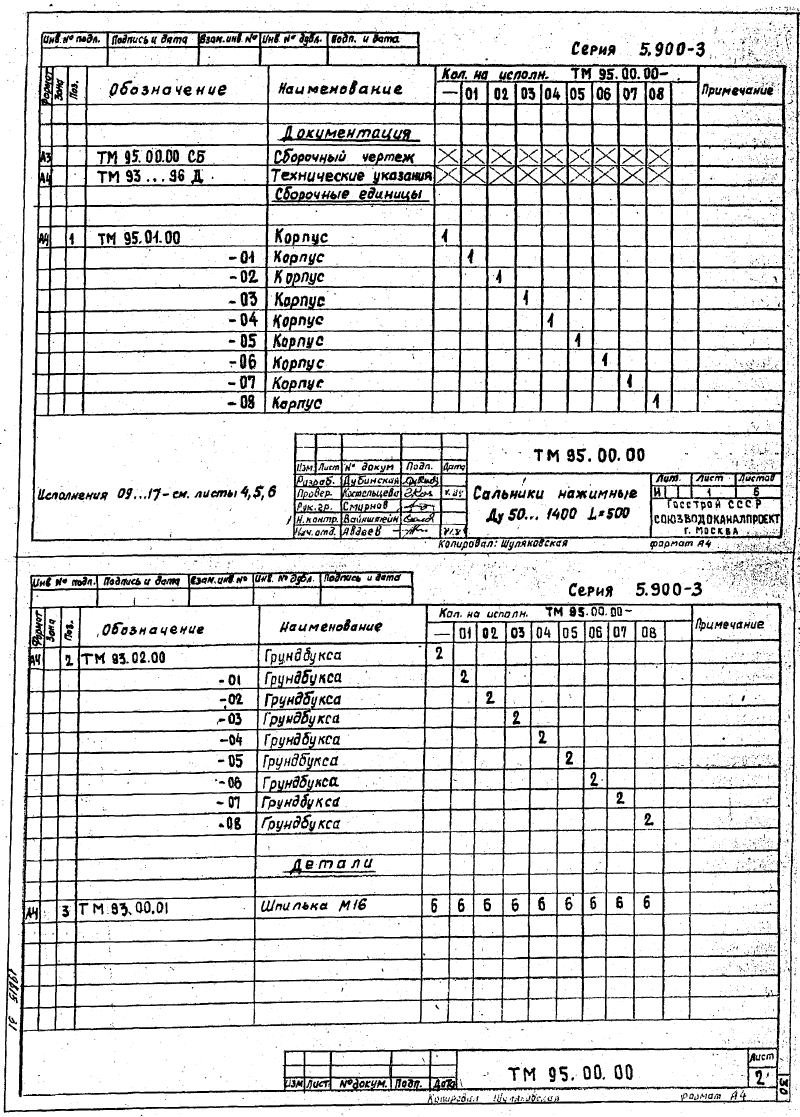 Инв. № подл. Подпись и дата Взам. инв № Инв. № дубл. Подп. и дата
Серия 5.900-3
Формат Зона Поз. Обозначение Наименование Кол. на исполн. ТМ 95.00.00– Примечание
— 01 02 03 04 05 06 07 08
Документация
А3 ТМ 95.00.00 СБ Сборочный чертеж X X X X X X X X X
А4 ТМ 93...96 Д Технические указания X X X X X X X X X
Сборочные единицы
А4 1 ТМ 95.01.00 Корпус 1
-01 Корпус 1
-02 Корпус 1
-03 Корпус 1
-04 Корпус 1
-05 Корпус 1
-06 Корпус 1
-07 Корпус 1
-08 Корпус 1
Исполнения 09...17-см. листы 4,5,6
ТМ 95.00.00
Изм. Лист № докум Подп. Дата
Разраб. Дубинская
Провер. Костельцева
Рук. гр. Смирнов
Н. контр. Вайнштейн
Нач. отд. Авдеев
Сальники нажимные
Ду 50... 1400 L=500
Лит. Лист Листов
И 1 6
Госстрой СССР
СОЮЗВОДОКАНАЛПРОЕКТ
г. Москва
Копировал: Шуляковская формат А4
Инв № подл. Подпись и дата Взам. инв. № Инв. № дубл. Подпись и дата
Серия 5.900-3
Формат Зона Поз. Обозначение Наименование Кол. на исполн. ТМ 95.00.00– Примечание
— 01 02 03 04 05 06 07 08
А4 2 ТМ 93.02.00 Грундбукса 2
-01 Грундбукса 2
-02 Грундбукса 2
-03 Грундбукса 2
-04 Грундбукса 2
-05 Грундбукса 2
-06 Грундбукса 2
-07 Грундбукса 2
-08 Грундбукса 2
Детали
А4 3 ТМ 93.00.01 Шпилька М16 6 6 6 6 6 6 6 6 6
Изм Лист № докум. Подп. Дата
ТМ 95.00.00
Лист
2
Копировал Шуляковская формат А4
30